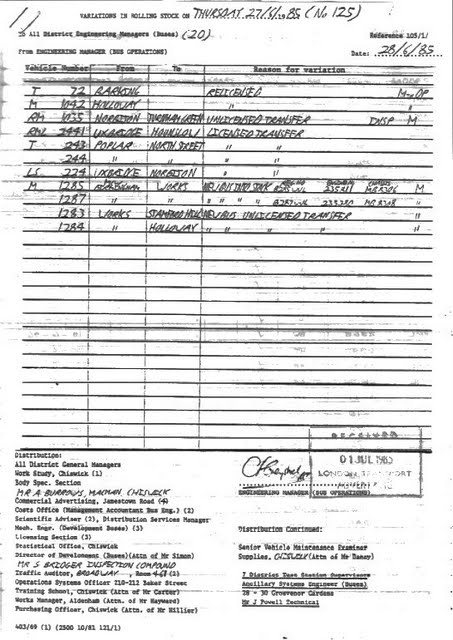 VARIATIONS IN ROLLING STOCK ON THURSDAY 27/6/1985 (No 125)
To All District Engineering Managers (Buses) (20)
Reference 105/1/
From ENGINEERING MANAGER (BUS OPERATIONS)
Date: 28/6/85
Vehicle Number From To Reason for variation
T 72 BARKING RELICENSED M OP
M 1042 HOLLOWAY "
RM 1035 NORBITON TURNHAM GREEN UNLICENSED TRANSFER DNSP M
RML 2441 UXBRIDGE HOUNSLOW LICENSED TRANSFER
T 243 POPLAR NORTH STREET " "
244 " " " "
LS 224 UXBRIDGE NORBITON " "
M 1285 WORKS NEW BUS INTO STOCK M
1287 " " " " " "
1283 WORKS STAMFORD HILL NEW BUS UNLICENSED TRANSFER "
1284 " HOLLOWAY " " " " "
RECEIVED
01 JUL 1985
LONDON TRANSPORT
Distribution:
All District General Managers
Work Study, Chiswick (1)
Body Spec. Section
MR A BURROWS, MACMAN, CHISWICK
Commercial Advertising, Jamestown Road (4)
Costs Office (Management Accountant Bus Eng.) (2)
Scientific Adviser (2), Distribution Services Manager
Mech. Engr. (Development Buses) (3)
Licensing Section (3)
Statistical Office, Chiswick
Director of Development (Buses) (Attn of Mr Simon)
MR S BRIDGER INSPECTION COMPOUND
Traffic Auditor, BROADWAY, Room (2)
Operations Systems Officer 210-212 Baker Street
Training School, Chiswick (Attn of Mr Carter)
Works Manager, Aldenham (Attn. of Mr Hayward)
Purchasing Officer, Chiswick (Attn of Mr Hillier)
403/69 (1) (2500 10/81 121/1)
ENGINEERING MANAGER (BUS OPERATIONS)
Distribution Continued:
Senior Vehicle Maintenance Examiner
Supplies, CHISWICK (Attn of Mr Danny)
7 District Zone Station Supervisors
Ancillary Systems Engineer (Buses)
28 - 30 Grosvenor Gardens
Mr J Powell Technical